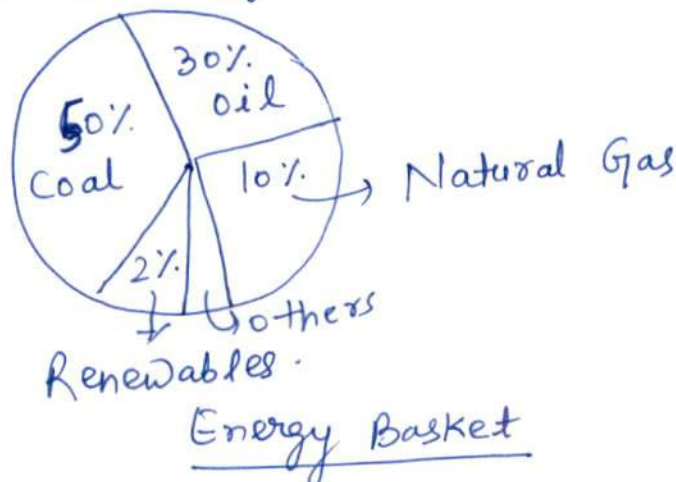 30%.
oil
50%.
Coal
10%. → Natural Gas
2%.
others
Renewables.
Energy Basket